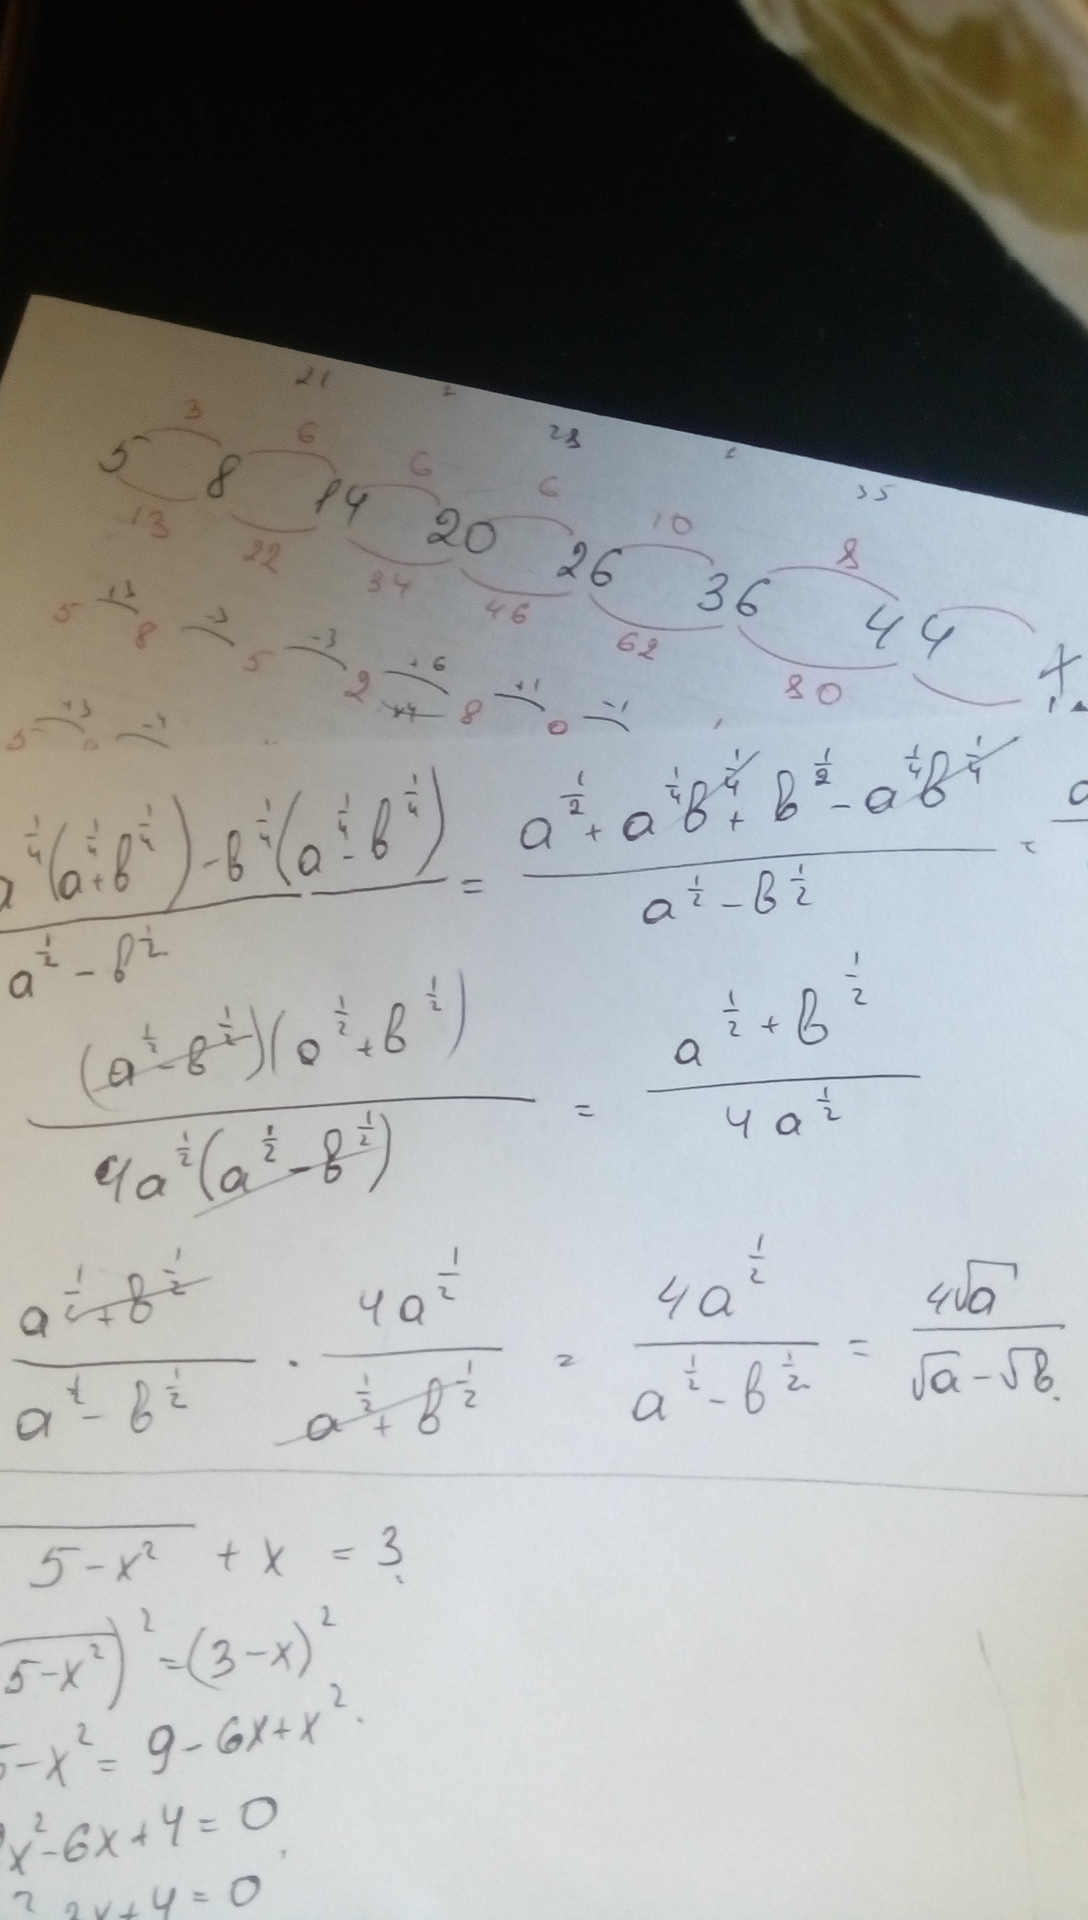 21 28 35
3 6 6 6 10 8
5 8 14 20 26 36 44 x
13 22 34 46 62 80
5 +3 8 -3 5 -3 2 +6 8 +1 0 -1
5 +3 -4
(a^{1/4} + b^{1/4}) - b^{1/4}(a^{1/4} - b^{1/4}) / a^{1/2} - b^{1/2} = a^{1/2} + a^{1/4}b^{1/4} + b^{1/2} - a^{1/4}b^{1/4} / a^{1/2} - b^{1/2} =
(a^{1/2} - b^{1/2})(a^{1/2} + b^{1/2}) / 4a^{1/2}(a^{1/2} - b^{1/2}) = a^{1/2} + b^{1/2} / 4a^{1/2}
a^{1/2} + b^{1/2} / a^{1/2} - b^{1/2} · 4a^{1/2} / a^{1/2} + b^{1/2} = 4a^{1/2} / a^{1/2} - b^{1/2} = 4√a / √a - √b.
5 - x² + x = 3
5 - x²)² = (3 - x)²
- x² = 9 - 6x + x².
x² - 6x + 4 = 0
x + 4 = 0